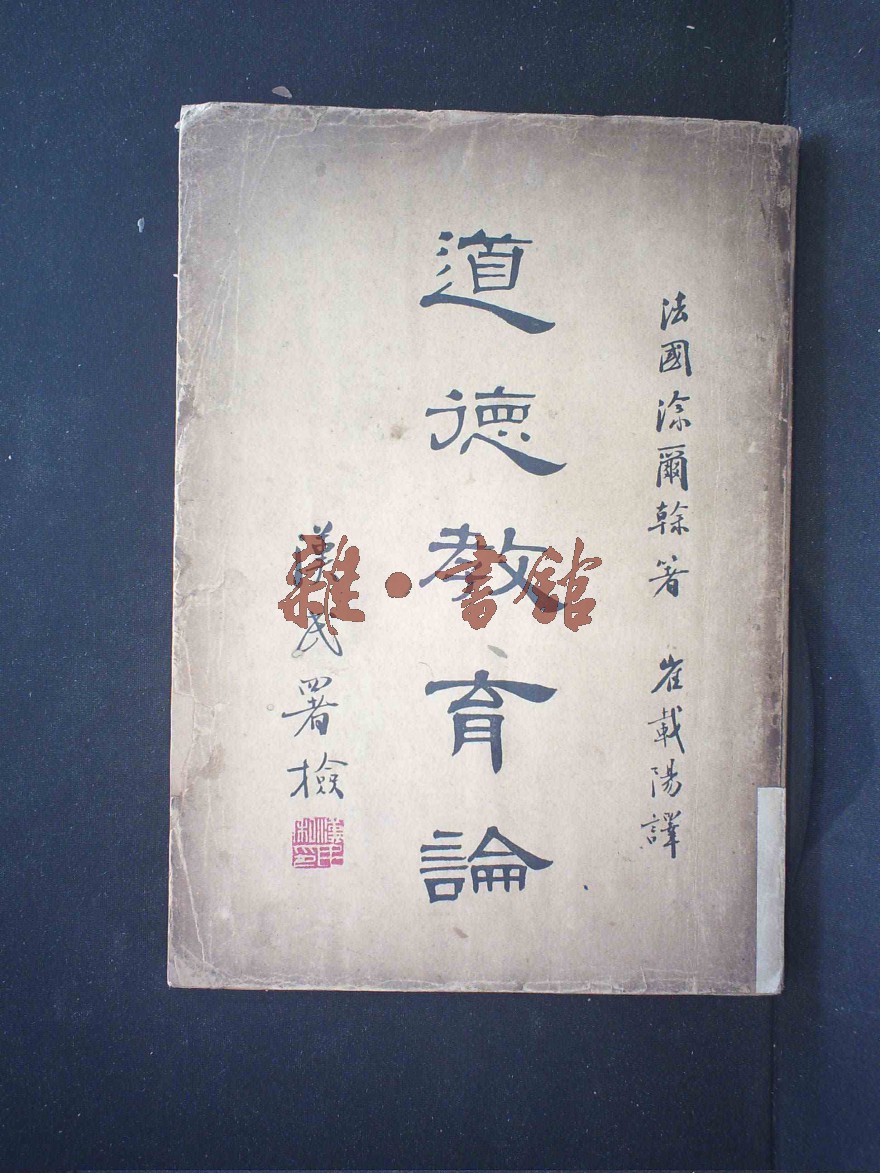 法國涂爾幹著 崔載陽譯
道德教育論
漢民署檢
雜·書館